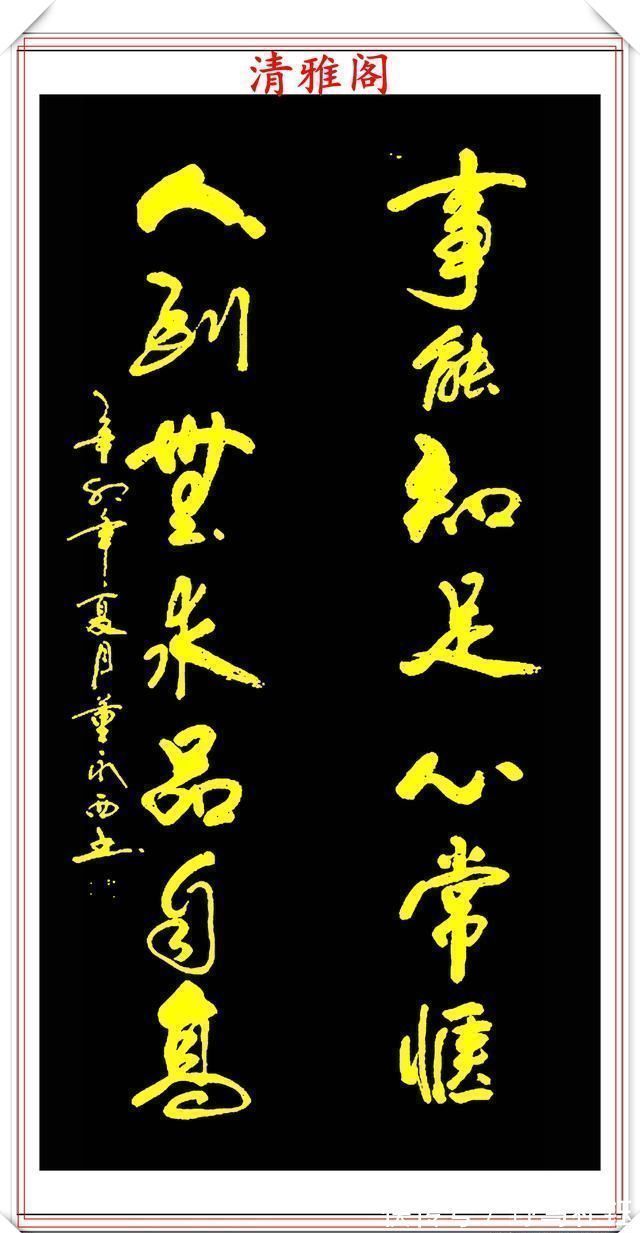 清雅阁
事能知足心常惬
人到無求品自高
辛卯年夏月董永西书